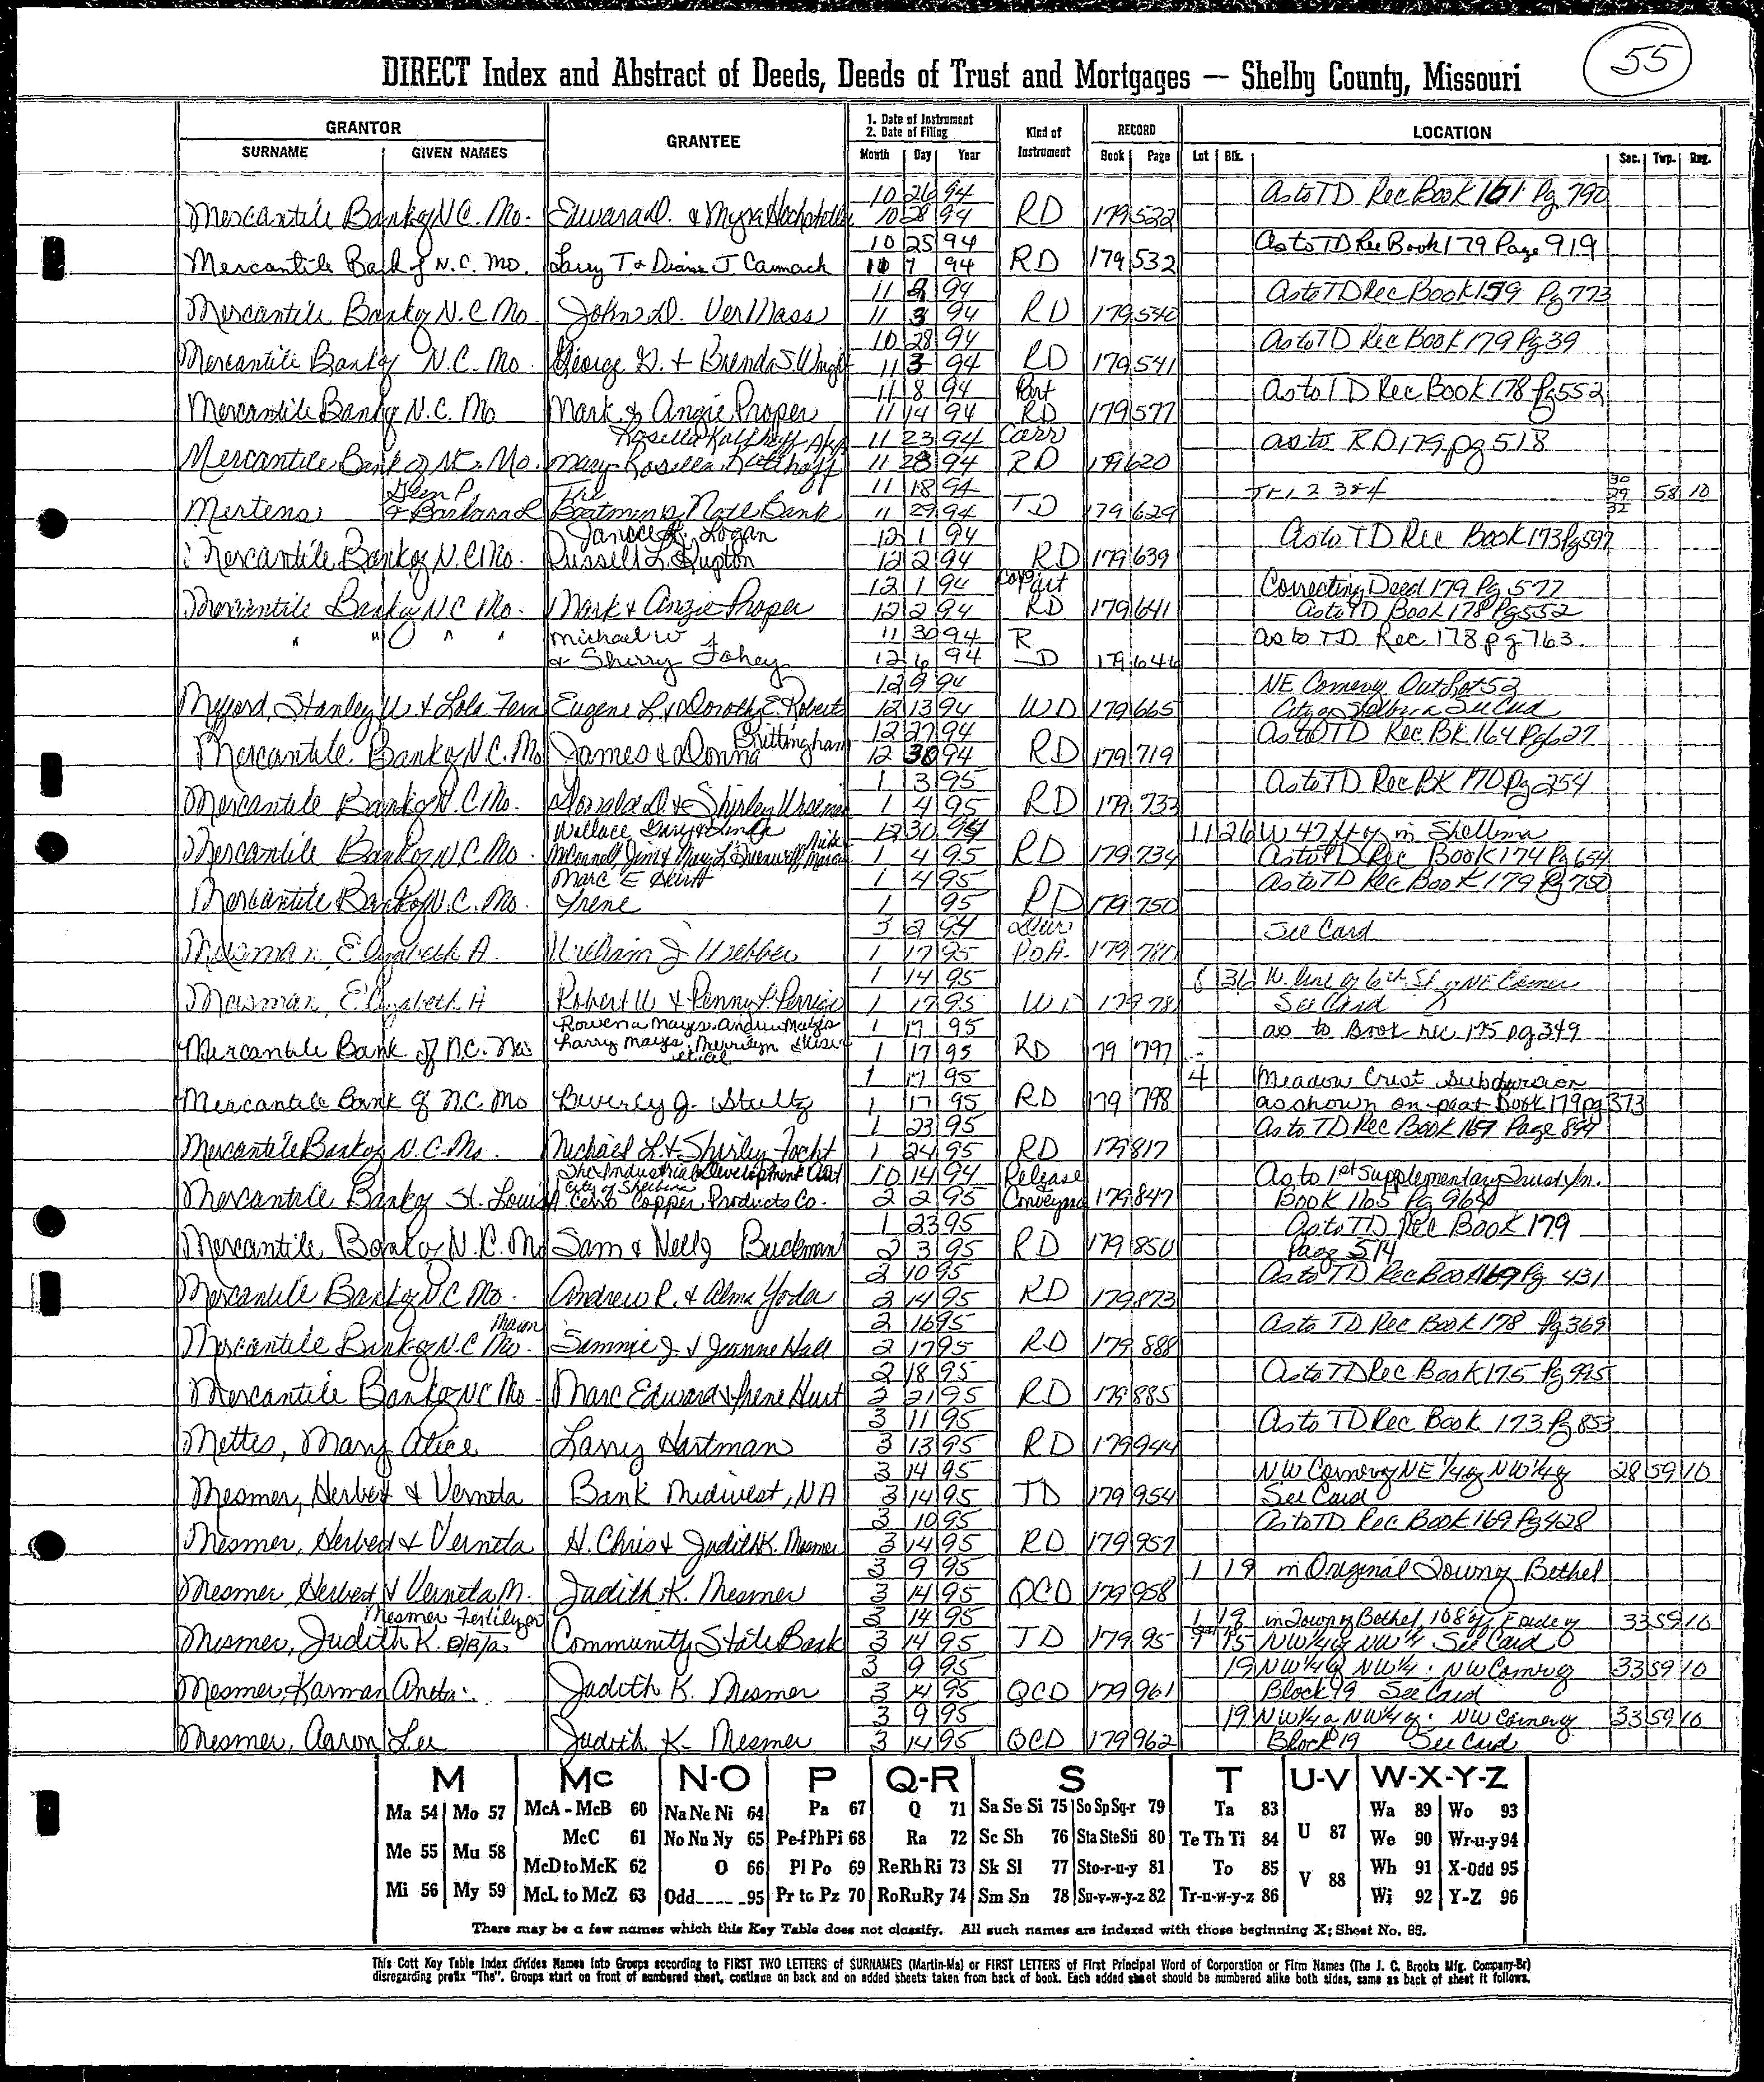 55
DIRECT Index and Abstract of Deeds, Deeds of Trust and Mortgages — Shelby County, Missouri
GRANTOR GRANTEE 1. Date of Instrument 2. Date of Filing Kind of Instrument RECORD LOCATION
SURNAME GIVEN NAMES Month Day Year Book Page Lot Blk. Sec. Twp. Rng.
10 26 94 As to TD Rec Book 161 Pg 790
Mercantile Bank of N.C. Mo. Edward D. & Myra Hochstetler 10 28 94 RD 179 522
10 25 94 As to TD Rec Book 179 Page 919
Mercantile Bank of N.C. Mo. Larry T & Diana J Camach 7 94 RD 179 532
11 2 94 As to TD Rec Book 159 Pg 773
Mercantile Bank of N.C Mo John D. VerMass 11 3 94 RD 179 540
10 28 94 As to TD Rec Book 179 Pg 39
Mercantile Bank of N.C. Mo George D. & Brenda S. Wright 11 3 94 RD 179 541
11 8 94 Part As to TD Rec Book 178 Pg 552
Mercantile Bank of N.C. Mo Mark & Angie Proper 11 14 94 RD 179 577
Rosella 11 23 94 Corr as to RD 179 pg 518
Mercantile Bank of N.C. Mo. Mary Rosella Kallhoff 11 28 94 RD 179 620
Glen P. 11 18 94 Tr 1 2 3 & 4 30 29 32 58 10
Mertens & Barbara L Boatmens Natl Bank 11 29 94 TD 179 629
Janice K. Logan 12 1 94 As to TD Rec Book 173 Pg 597
Mercantile Bank of N.C. Mo. Russell L. Gupton 12 2 94 RD 179 639
12 1 94 Cor Part Correcting Deed 179 Pg 577
Mercantile Bank of N.C Mo. Mark & Angie Proper 12 2 94 RD 179 641 As to TD Book 178 Pg 552
" " " " Michael W 11 30 94 R as to TD Rec 178 pg 763.
& Sherry Fohey 12 6 94 D 179 646
12 9 94 NE Corner of Out Lot 52
Stanley W. & Lola Fern Eugene L. & Dorothy E. Roberts 12 13 94 WD 179 665 City of Shelbina See Card
Brittingham 12 27 94 As to TD Rec BK 164 Pg 627
Mercantile Bank of N.C. Mo James & Donna 12 30 94 RD 179 719
1 3 95 As to TD Rec BK 170 Pg 254
Mercantile Bank of N.C. Mo. Donald D & Shirley 1 4 95 RD 179 733
Wallace, Gary & Linda 12 30 94 11 26 W 47 ft of in Shelbina
Mercantile Bank of N.C. Mo 1 4 95 RD 179 734 As to TD Rec Book 174 Pg 654
Marc E Hurt 1 4 95 As to TD Rec Book 179 Pg 750
Mercantile Bank of N.C. Mo. Irene 1 95 RD 179 750
3 2 94 Durr See Card
Elizabeth A. William J Webber 1 17 95 P.O.A. 179 780
1 14 95 6 36 W. line of 6th St of NE Corner
Elizabeth A Robert W & Penny L. 1 17 95 WD 179 781 See Card
Rowena Mays, Andrew Mays 1 17 95 as to Book rec 175 pg 349
Mercantile Bank of N.C. Mo Larry Mays, et al 1 17 95 RD 79 797
1 17 95 4 Meadow Crest Subdivision
Mercantile Bank of N.C. Mo Beverly J. Stultz 1 17 95 RD 179 798 as shown on plat Book 179 pg 373
1 23 95 As to TD Rec Book 167 Page 894
Mercantile Bank of N.C. Mo. Michael L. & Shirley Focht 1 24 95 RD 179 817
The Industrial Development Auth 10 14 94 Release As to 1st Supplementary Trust In.
City of Shelbina
Mercantile Bank of St. Louis Cerro Copper Products Co. 2 2 95 Conveyance 179 847 Book 165 Pg 964
1 23 95 As to TD Rec Book 179
Mercantile Bank of N.C. Mo Sam & Nelly Buckman 2 3 95 RD 179 850 Page 514
2 10 95 As to TD Rec Book 169 Pg 431
Mercantile Bank of N.C Mo. Andrew R. & Alma Yoda 2 14 95 RD 179 873
2 16 95 As to TD Rec Book 178 Pg 369
Mercantile Bank of N.C Mo. Sammie J. & Jeanne Hall 2 17 95 RD 179 888
2 18 95 As to TD Rec Book 175 Pg 995
Mercantile Bank of N.C Mo. Marc Edward & Irene Hurt 2 21 95 RD 179 885
3 11 95 As to TD Rec Book 173 Pg 853
Mettes, Mary Alice Larry Hartman 3 13 95 RD 179 944
3 14 95 NW Corner of NE 1/4 of NW 1/4 of 28 59 10
Mesmer, Herbert & Verneta Bank Midwest, NA 3 14 95 TD 179 954 See Card
3 10 95 As to TD Rec Book 169 Pg 428
Mesmer, Herbert & Verneta H. Chris & Judith K. Mesmer 3 14 95 RD 179 957
3 9 95 1 19 in Original Town of Bethel
Mesmer, Herbert & Verneta M. Judith K. Mesmer 3 14 95 QCD 179 958
Mesmer Fertilizer 3 14 95 1 19 in Town of Bethel, 108' off E side of 33 59 10
Mesmer, Judith K. D/B/A Community State Bank 3 14 95 TD 179 95 15 NW 1/4 of NW 1/4 See Card
3 9 95 19 NW 1/4 of NW 1/4 NW Corner of 33 59 10
Mesmer, Karman Aneta Judith K. Mesmer 3 14 95 QCD 179 961 Block 19 See Card
3 9 95 19 NW 1/4 of NW 1/4 of NW Corner of 33 59 10
Mesmer, Aaron Lee Judith K. Mesmer 3 14 95 QCD 179 962 Block 19 See Card
M Mc N-O P Q-R S T U-V W-X-Y-Z
Ma 54 Mo 57 McA - McB 60 Na Ne Ni 64 Pa 67 Q 71 Sa Se Si 75 So Sp Sq-r 79 Ta 83 U 87 Wa 89 Wo 93
Me 55 Mu 58 McC 61 No Nu Ny 65 Pe-f Ph Pi 68 Ra 72 Sc Sh 76 Sta Ste Sti 80 Te Th Ti 84 We 90 Wr-u-y 94
McD to McK 62 O 66 Pl Po 69 Re Rh Ri 73 Sk Sl 77 Sto-r-u-y 81 To 85 V 88 Wh 91 X-Odd 95
Mi 56 My 59 McL to McZ 63 Odd 95 Pr to Pz 70 Ro Ru Ry 74 Sm Sn 78 Su-v-w-y-z 82 Tr-u-w-y-z 86 Wi 92 Y-Z 96
There may be a few names which this Key Table does not classify. All such names are indexed with those beginning X; Sheet No. 95.
This Cott Key Table Index divides Names into Groups according to FIRST TWO LETTERS of SURNAMES (Martin-Ma) or FIRST LETTERS of First Principal Word of Corporation or Firm Names (The J. C. Brooks Mfg. Company-Br)
disregarding prefix "The". Groups start on front of numbered sheet, continue on back and on added sheets taken from back of book. Each added sheet should be numbered alike both sides, same as back of sheet it follows.